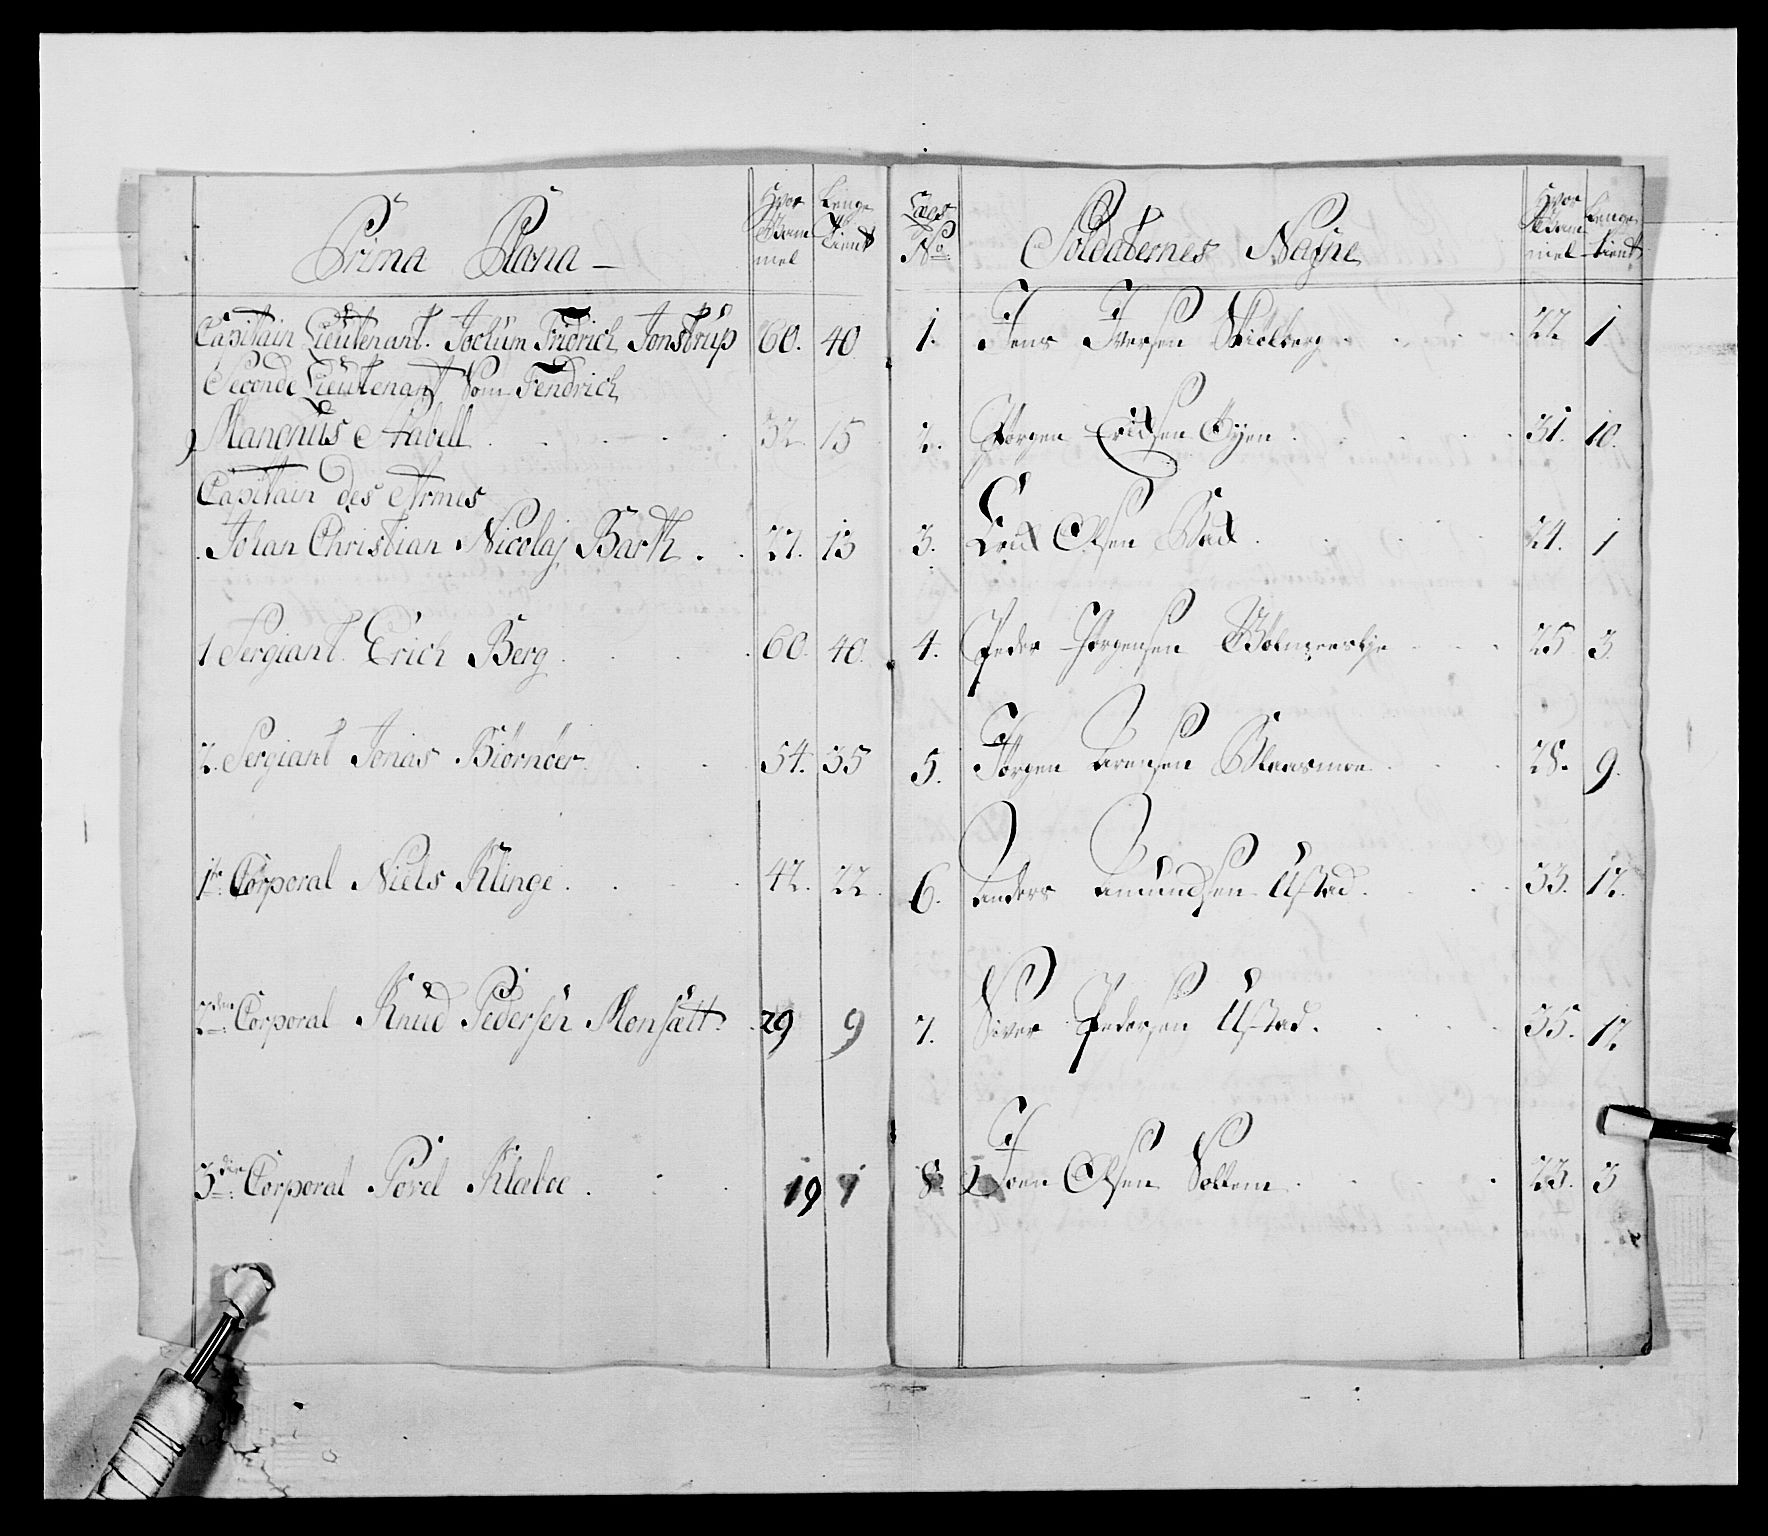 Prima Plana —
Hvor Gam̄mel
Lenge Tient
Capitain Lieutenant. Jochum Fridrich Jonstrup 60. 40
Seconde Lieutenant Som Fendrich
Mancnus Arabell . . . . . 32 15
Capitain des Armes
Johan Christian Nicolaj Barth . . 27. 13
1 Sergiant Erich Berg . . . . 60. 40.
2. Sergiant Jonas Biörnöer . . . 54. 35
1te Corporal Niels Klinge . . . 42. 22.
2den Corporal Knud Pedersen Monsætt. . 29 9
3die Corporal Povel Klæboe . . . 19 1
Læs No
Soldaternes Nafne
Hvor Gammel
Lenge tient
1. Jens Iversen . . . 22 1
2. Jørgen Erichsen Øyen . . . 31. 10.
3. Erich Olsen . . . 21. 1
4. Peder Jørgensen . . . 25 3.
5. Jørgen Arensen . . . 28. 9.
6. Anders Amundsen Ustad . . . 33. 12.
7. Siver Pedersen Ustad . . . . 35. 12.
8. Joen Olsen Soldem . . . . 23. 3